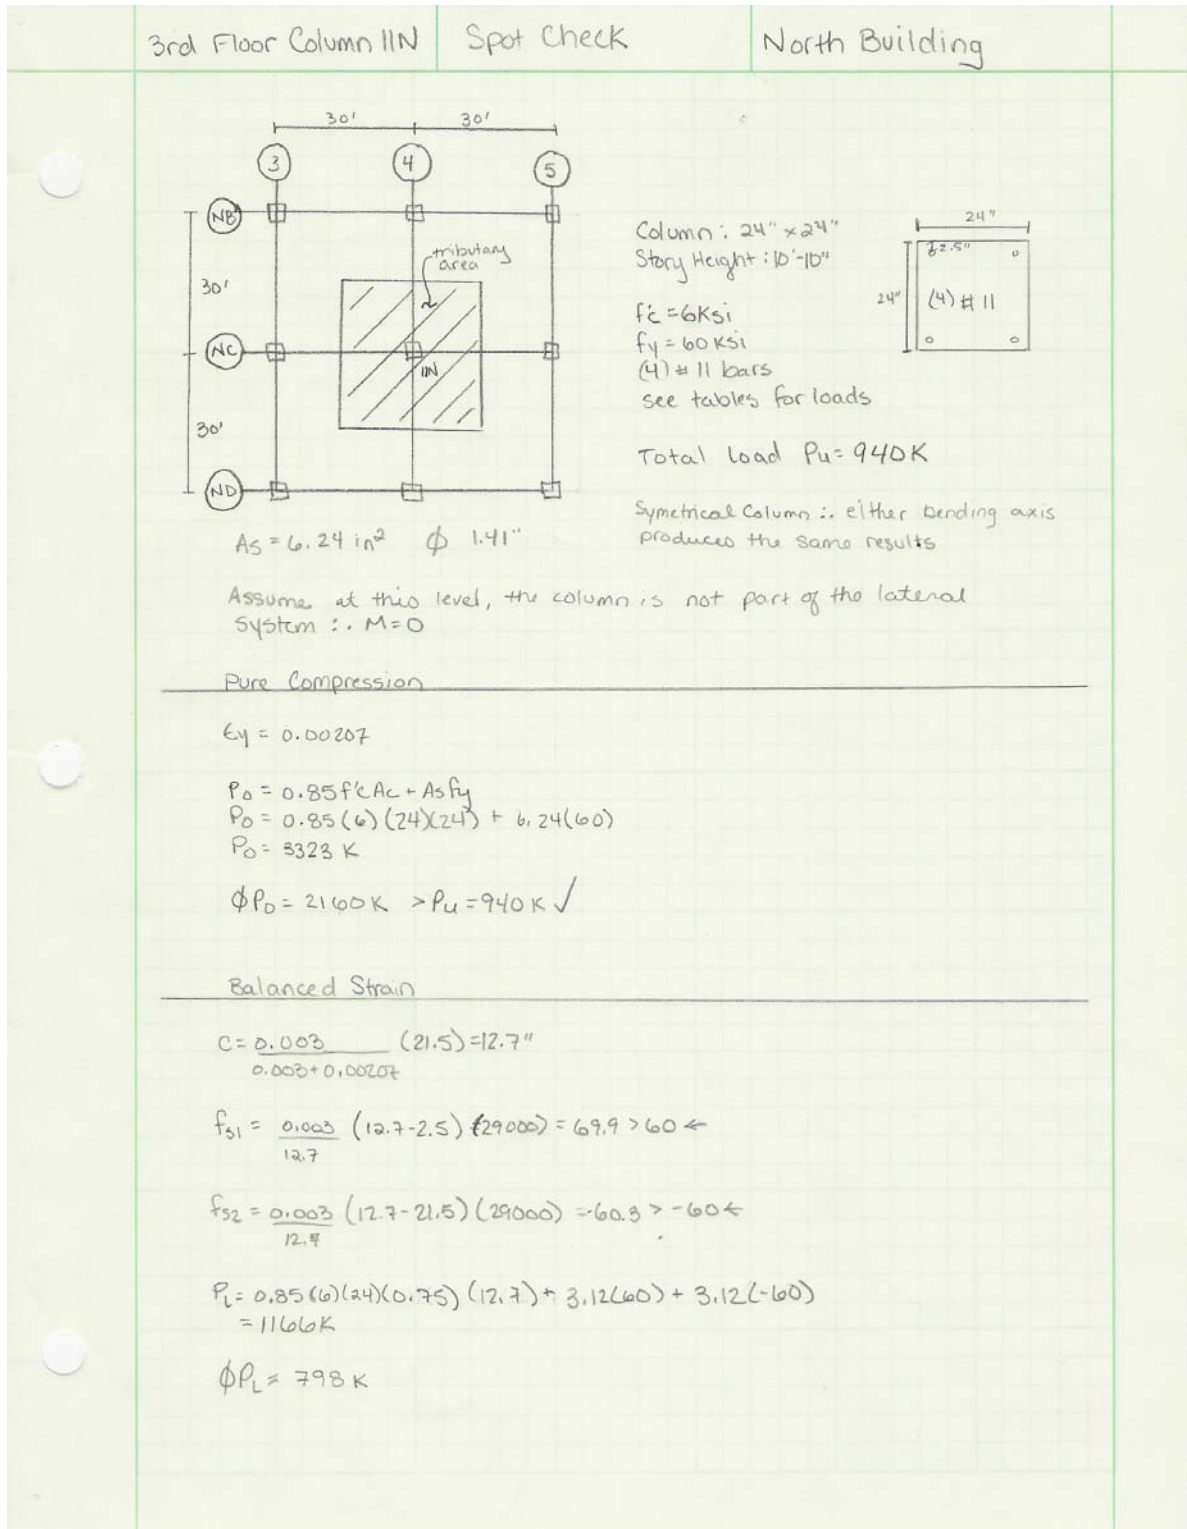 3rd Floor Column 11N
Spot Check
North Building
30'
30'
3
4
5
NB
tributary
area
30'
NC
11N
30'
ND
Column: 24" x 24"
Story Height: 10'-10"
f'c = 6ksi
fy = 60 ksi
(4) # 11 bars
see tables for loads
24"
2.5"
24"
(4) # 11
Total load Pu= 940K
Symetrical Column ∴ either bending axis
produces the same results
As = 6.24 in² ϕ 1.41"
Assume at this level, the column is not part of the lateral
system ∴ M=0
Pure Compression
ϵy = 0.00207
Po = 0.85f'cAc + Asfy
Po = 0.85(6)(24)(24) + 6.24(60)
Po = 3323 K
ϕPo = 2160K > Pu = 940K ✓
Balanced Strain
C = 0.003 (21.5) = 12.7"
0.003 + 0.00207
fs1 = 0.003 (12.7-2.5) (29000) = 69.9 > 60 ←
12.7
fs2 = 0.003 (12.7-21.5) (29000) = -60.3 > -60 ←
12.7
PL = 0.85(6)(24)(0.75) (12.7) + 3.12(60) + 3.12(-60)
= 1166K
ϕPL = 798 K